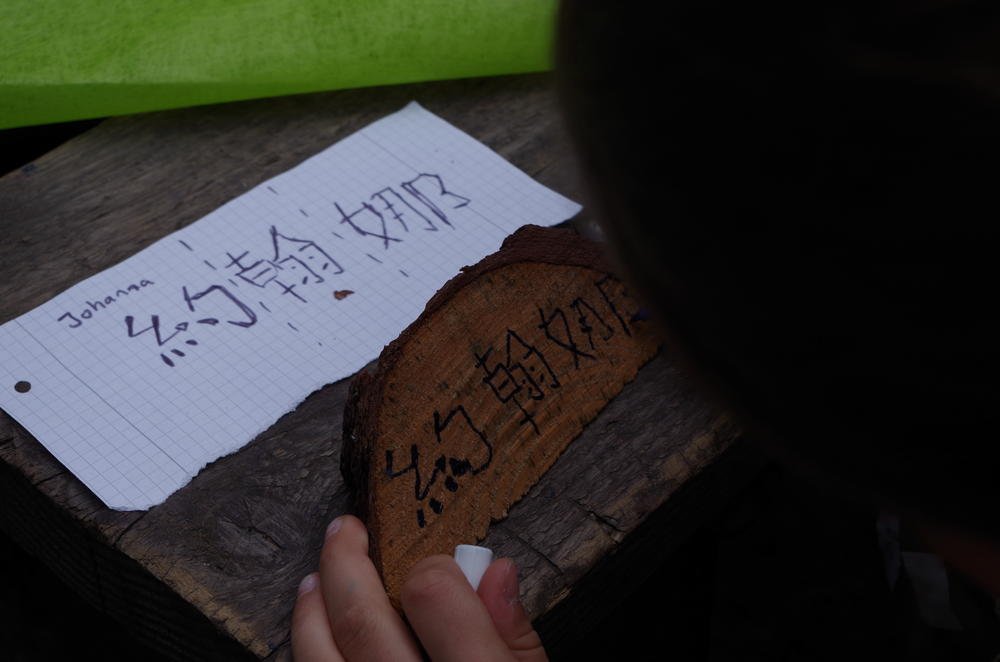 Johanna
約翰娜
約翰娜